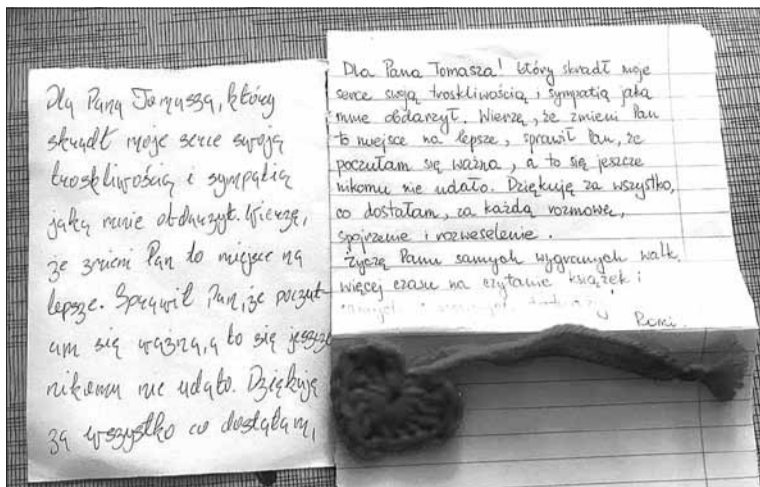 Dla Pana Tomasza, który
skradł moje serce swoją
troskliwością i sympatią
jaką mnie obdarzył. Wierzę,
że zmieni Pan to miejsce na
lepsze. Sprawił Pan, że poczuł-
am się ważna, a to się jeszcze
nikomu nie udało. Dziękuję
za wszystko co dostałam,
Dla Pana Tomasza! który skradł moje
serce swoją troskliwością i sympatią jaką
mnie obdarzył. Wierzę, że zmieni Pan
to miejsce na lepsze, sprawił Pan, że
poczułam się ważna, a to się jeszcze
nikomu nie udało. Dziękuję za wszystko,
co dostałam, za każdą rozmowę,
spojrzenie i rozweselenie.
Życzę Panu samych wygranych walk,
więcej czasu na czytanie książek i
Romi.